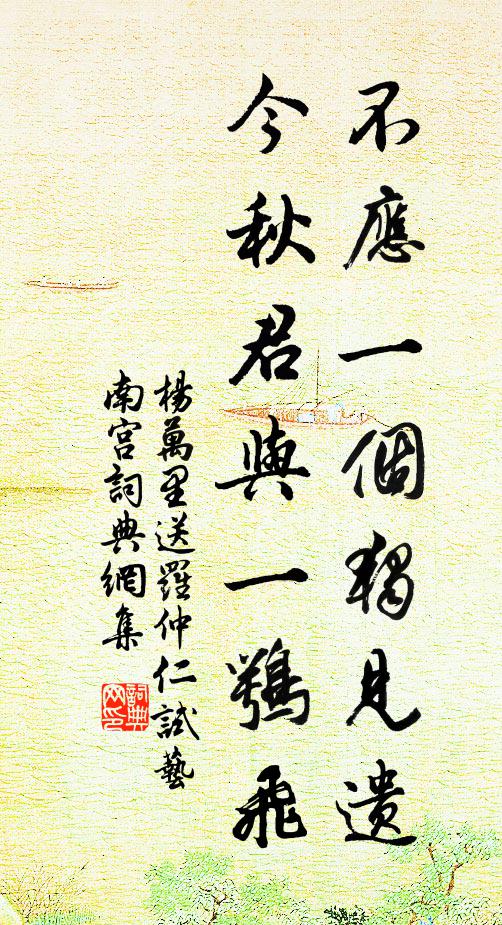 不應一個獨見遺
今秋君與一鶚飛
楊萬里送羅仲仁試藝
南宮詞典網集
詞典
网印